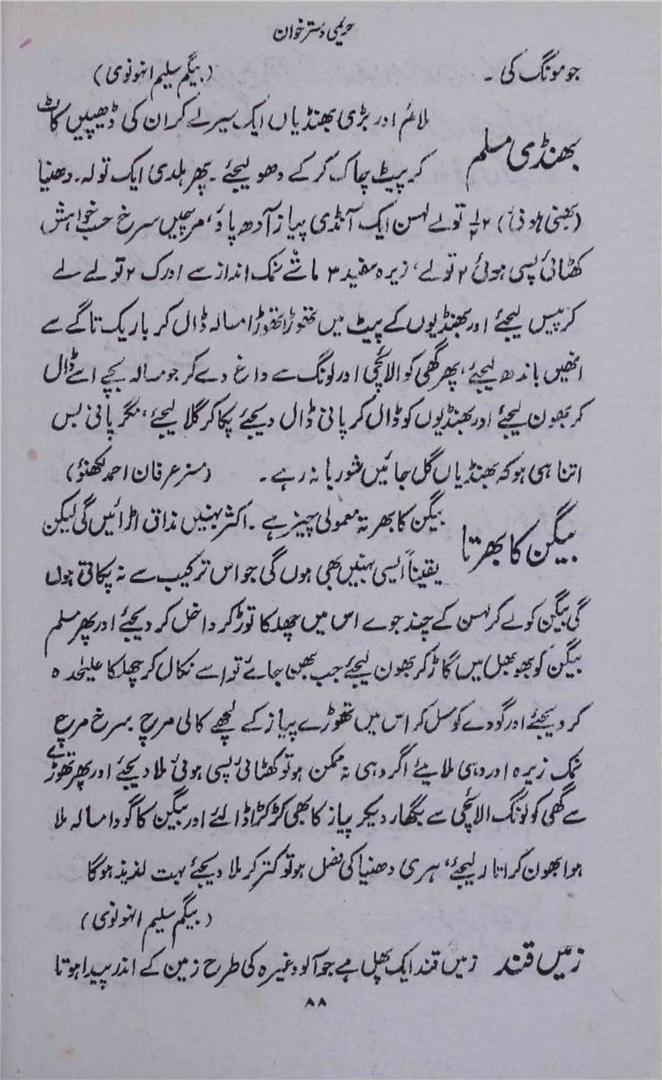 حریمی دسترخوان
جو مونگ کی ۔ (بیگم سلیم انہونوی)
بھنڈی مسلم
لائم اور بڑی بھنڈیاں ایک سیر لے کر ان کی ڈھیپیں کاٹ
کر پیٹ چاک کر کے دھو لیجئے ۔ پھر ہلدی ایک تولہ۔ دھنیا
(بھنی ہوئی) ۲½ تولے لہسن ایک آنڈی پیاز آدھ پاؤ، مرچیں سرخ حسب خواہش،
کھٹائی پسی ہوئی ۲ تولے، زیرہ سفید ۳ ماشے نمک انداز سے ادرک ۲ تولے لے
کر پیس لیجئے اور بھنڈیوں کے پیٹ میں تھوڑا تھوڑا مسالہ ڈال کر باریک تاگے سے
انھیں باندھ لیجئے، پھر گھی کو الائچی اور لونگ سے داغ دے کر جو مسالہ بچے اسے ڈال
کر بھون لیجئے اور بھنڈیوں کو ڈال کر پانی ڈال دیجئے پکا کر گلا لیجئے، مگر پانی بس
اتنا ہی ہو کہ بھنڈیاں گل جائیں شوربا نہ رہے ۔ (مسز عرفان احمد لکھنؤ)
بیگن کا بھرتا
بیگن کا بھرتہ معمولی چیز ہے ۔ اکثر بہنیں مذاق اڑائیں گی لیکن
یقیناً ایسی بہنیں بھی ہوں گی جو اس ترکیب سے نہ پکاتی ہوں
گی بیگن کو لے کر لہسن کے چند جوے اس میں چھلکا توڑ کر داخل کر دیجئے اور پھر مسلم
بیگن کو بھوبھل میں گاڑ کر بھون لیجئے جب بھن جائے تو اسے نکال کر چھلکا علیحدہ
کر دیجئے اور گودے کو مسل کر اس میں تھوڑے پیاز کے لچھے کالی مرچ سرخ مرچ
نمک زیرہ اور دہی ملایئے اگر دہی نہ ممکن ہو تو کھٹائی پسی ہوئی ملا دیجئے اور پھر تھوڑے
سے گھی کو لونگ الائچی سے بگھار دیکر پیاز کا بھی کڑکڑا ڈالئے اور بیگن کا گودا مسالہ ملا
ہوا بھون کر اتار لیجئے، ہری دھنیا کی فصل ہو تو کتر کر ملا دیجئے بہت لذیذ ہوگا
(بیگم سلیم انہونوی)
زمیں قند زمیں قند ایک پھل ہے جو آلو وغیرہ کی طرح زمین کے اندر پیدا ہوتا
۸۸